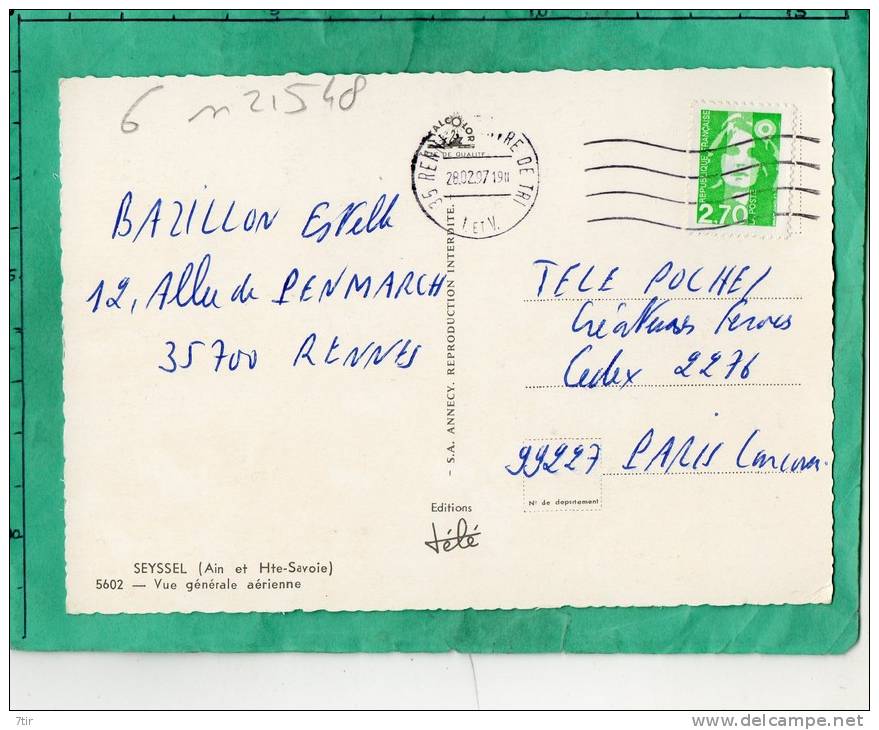 6 n21548
BAZILLON Estelle
12, Allée de PENMARCH
35700 RENNES
SEYSSEL (Ain et Hte-Savoie)
5602 — Vue générale aérienne
- S.A. ANNECY. REPRODUCTION INTERDITE.
Editions
télé
28.02.97 19H
I ET V.
REPUBLIQUE FRANÇAISE
LA POSTE
2,70
TELE POCHE/
Cedex 2276
99227 PARIS
N° de departement
7tir
www.delcampe.net